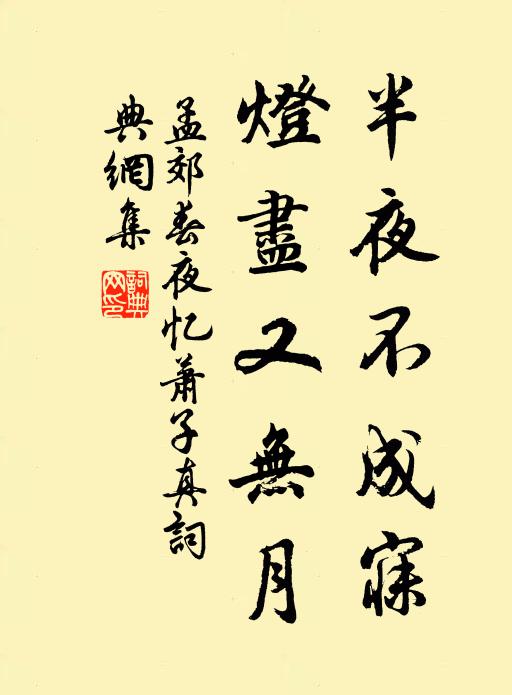 半夜不成寐
燈盡又無月
孟郊春夜忆蕭子真詞
典網集
詞典
网印